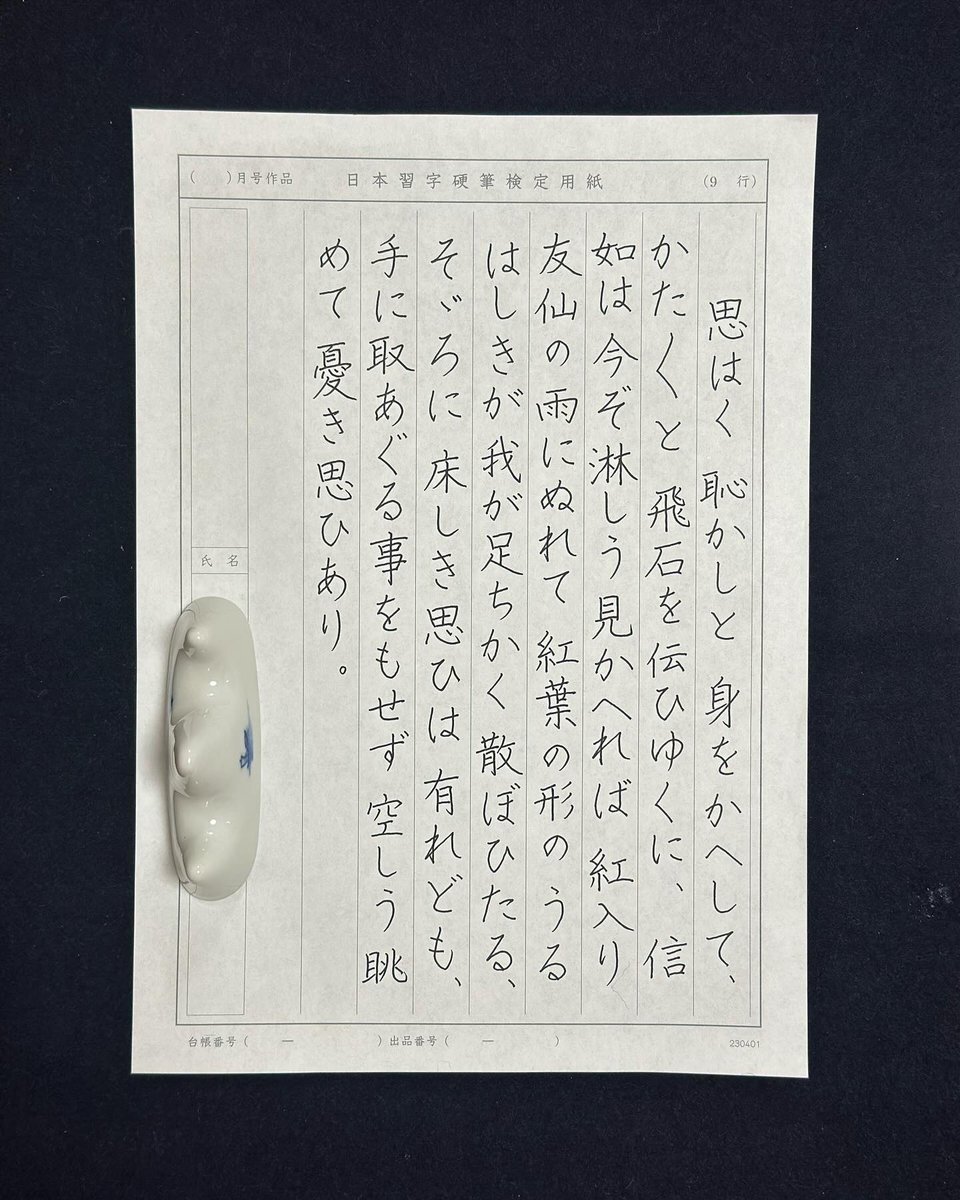 （　　）月号作品　日本習字硬筆検定用紙　（9　行）
思はく恥かしと身をかへして、
かた〱と飛石を伝ひゆくに、信
如は今ぞ淋しう見かへれば紅入り
友仙の雨にぬれて紅葉の形のうる
はしきが我が足ちかく散ぼひたる、
そゞろに床しき思ひは有れども、
手に取あぐる事をもせず空しう眺
めて憂き思ひあり。
氏名
台帳番号（　　ー　　　　）出品番号（　　ー　　　　）　230401